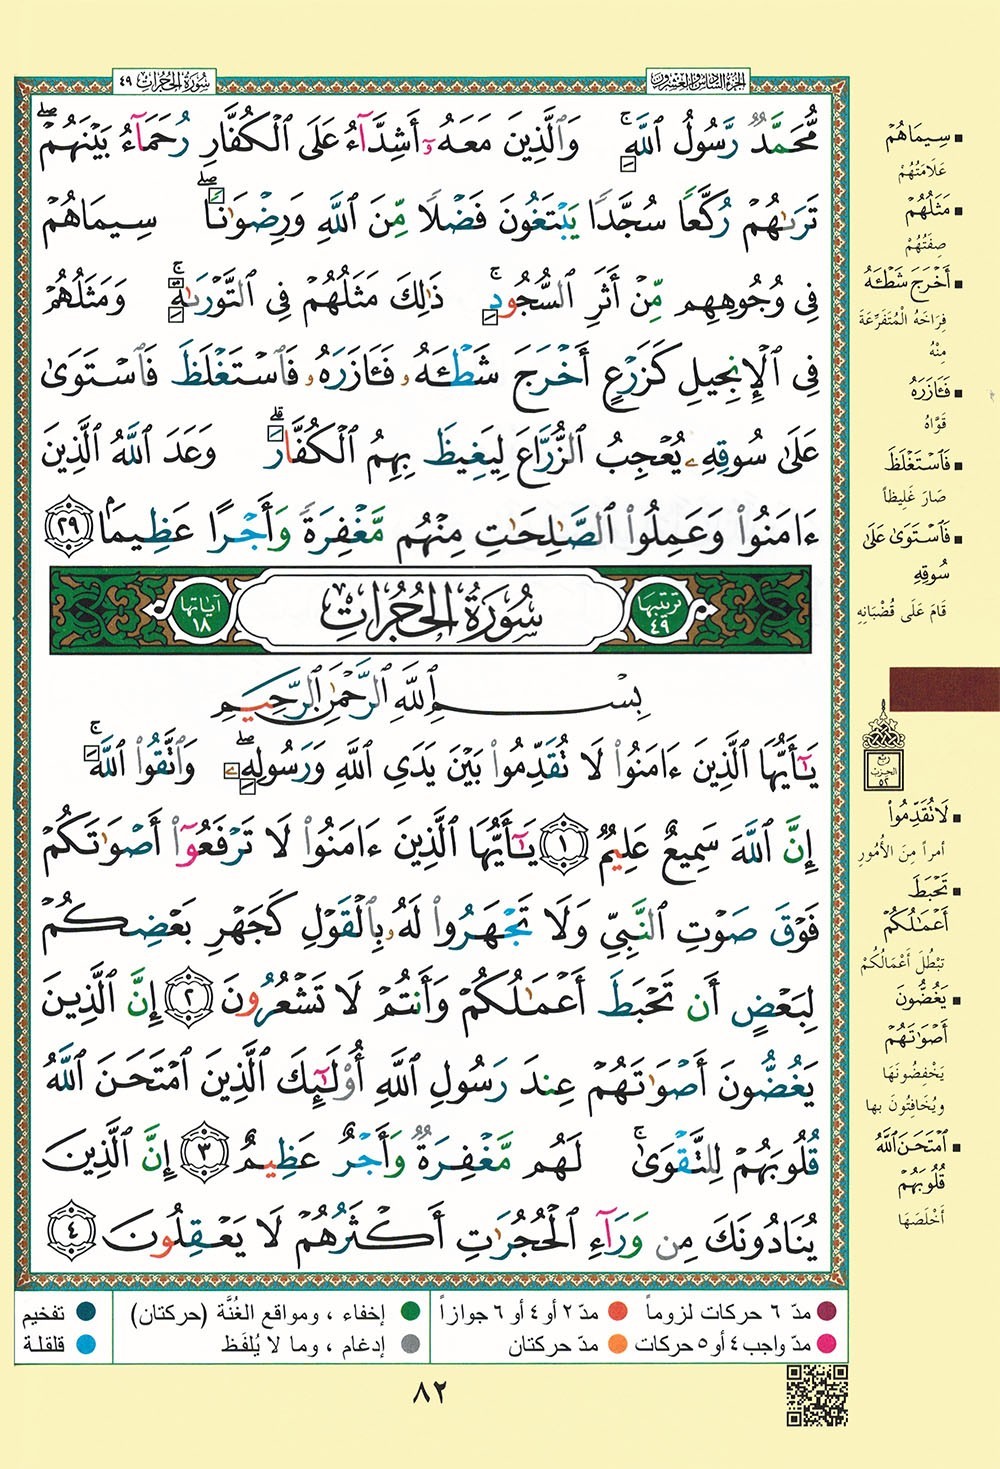 الجزء السادس والعشرون
سُورَةُ الحُجُرَاتِ ٤٩
مُّحَمَّدٌ رَّسُولُ ٱللَّهِۚ وَٱلَّذِينَ مَعَهُۥٓ أَشِدَّآءُ عَلَى ٱلْكُفَّارِ رُحَمَآءُ بَيْنَهُمْۖ
تَرَىٰهُمْ رُكَّعًا سُجَّدًا يَبْتَغُونَ فَضْلًا مِّنَ ٱللَّهِ وَرِضْوَٰنًاۖ سِيمَاهُمْ
فِى وُجُوهِهِم مِّنْ أَثَرِ ٱلسُّجُودِۚ ذَٰلِكَ مَثَلُهُمْ فِى ٱلتَّوْرَىٰةِۚ وَمَثَلُهُمْ
فِى ٱلْإِنجِيلِ كَزَرْعٍ أَخْرَجَ شَطْـَٔهُۥ فَـَٔازَرَهُۥ فَٱسْتَغْلَظَ فَٱسْتَوَىٰ
عَلَىٰ سُوقِهِۦ يُعْجِبُ ٱلزُّرَّاعَ لِيَغِيظَ بِهِمُ ٱلْكُفَّارَۗ وَعَدَ ٱللَّهُ ٱلَّذِينَ
ءَامَنُوا۟ وَعَمِلُوا۟ ٱلصَّٰلِحَٰتِ مِنْهُم مَّغْفِرَةً وَأَجْرًا عَظِيمًۢا ٢٩
ترتيبها ٤٩
سُورَةُ الحُجُرَاتِ
آياتها ١٨
بِسْمِ ٱللَّهِ ٱلرَّحْمَٰنِ ٱلرَّحِيمِ
يَٰٓأَيُّهَا ٱلَّذِينَ ءَامَنُوا۟ لَا تُقَدِّمُوا۟ بَيْنَ يَدَىِ ٱللَّهِ وَرَسُولِهِۦۖ وَٱتَّقُوا۟ ٱللَّهَۚ
إِنَّ ٱللَّهَ سَمِيعٌ عَلِيمٌ ١ يَٰٓأَيُّهَا ٱلَّذِينَ ءَامَنُوا۟ لَا تَرْفَعُوٓا۟ أَصْوَٰتَكُمْ
فَوْقَ صَوْتِ ٱلنَّبِيِّ وَلَا تَجْهَرُوا۟ لَهُۥ بِٱلْقَوْلِ كَجَهْرِ بَعْضِكُمْ
لِبَعْضٍ أَن تَحْبَطَ أَعْمَٰلُكُمْ وَأَنتُمْ لَا تَشْعُرُونَ ٢ إِنَّ ٱلَّذِينَ
يَغُضُّونَ أَصْوَٰتَهُمْ عِندَ رَسُولِ ٱللَّهِ أُو۟لَٰٓئِكَ ٱلَّذِينَ ٱمْتَحَنَ ٱللَّهُ
قُلُوبَهُمْ لِلتَّقْوَىٰۚ لَهُم مَّغْفِرَةٌ وَأَجْرٌ عَظِيمٌ ٣ إِنَّ ٱلَّذِينَ
يُنَادُونَكَ مِن وَرَآءِ ٱلْحُجُرَٰتِ أَكْثَرُهُمْ لَا يَعْقِلُونَ ٤
▪ سِيمَاهُمْ
عَلَامَتُهُمْ
▪ مَثَلُهُمْ
صِفَتُهُمْ
▪ أَخْرَجَ شَطْـَٔهُ
فِرَاخَهُ الْمُتَفَرِّعَةَ
مِنْهُ
▪ فَـَٔازَرَهُ
قَوَّاهُ
▪ فَٱسْتَغْلَظَ
صَارَ غَلِيظاً
▪ فَٱسْتَوَىٰ عَلَىٰ
سُوقِهِ
قَامَ عَلَى قُضْبَانِهِ
ربع
الحزب
٥٢
▪ لَا تُقَدِّمُوا۟
أمراً مِنَ الأُمُورِ
▪ تَحْبَطَ
أَعْمَٰلُكُمْ
تَبْطُلَ أَعْمَالُكُمْ
▪ يَغُضُّونَ
أَصْوَٰتَهُمْ
يَخْفِضُونَهَا
ويُخَافِتُونَ بها
▪ ٱمْتَحَنَ ٱللَّهُ
قُلُوبَهُمْ
أَخْلَصَهَا
مدّ ٦ حركات لزوماً مدّ ٢ أو ٤ أو ٦ جوازاً إخفاء ، ومواقع الغُنَّة (حركتان) تفخيم
مدّ واجب ٤ أو ٥ حركات مدّ حركتان إدغام ، وما لا يُلفَظ قلقلة
٨٢